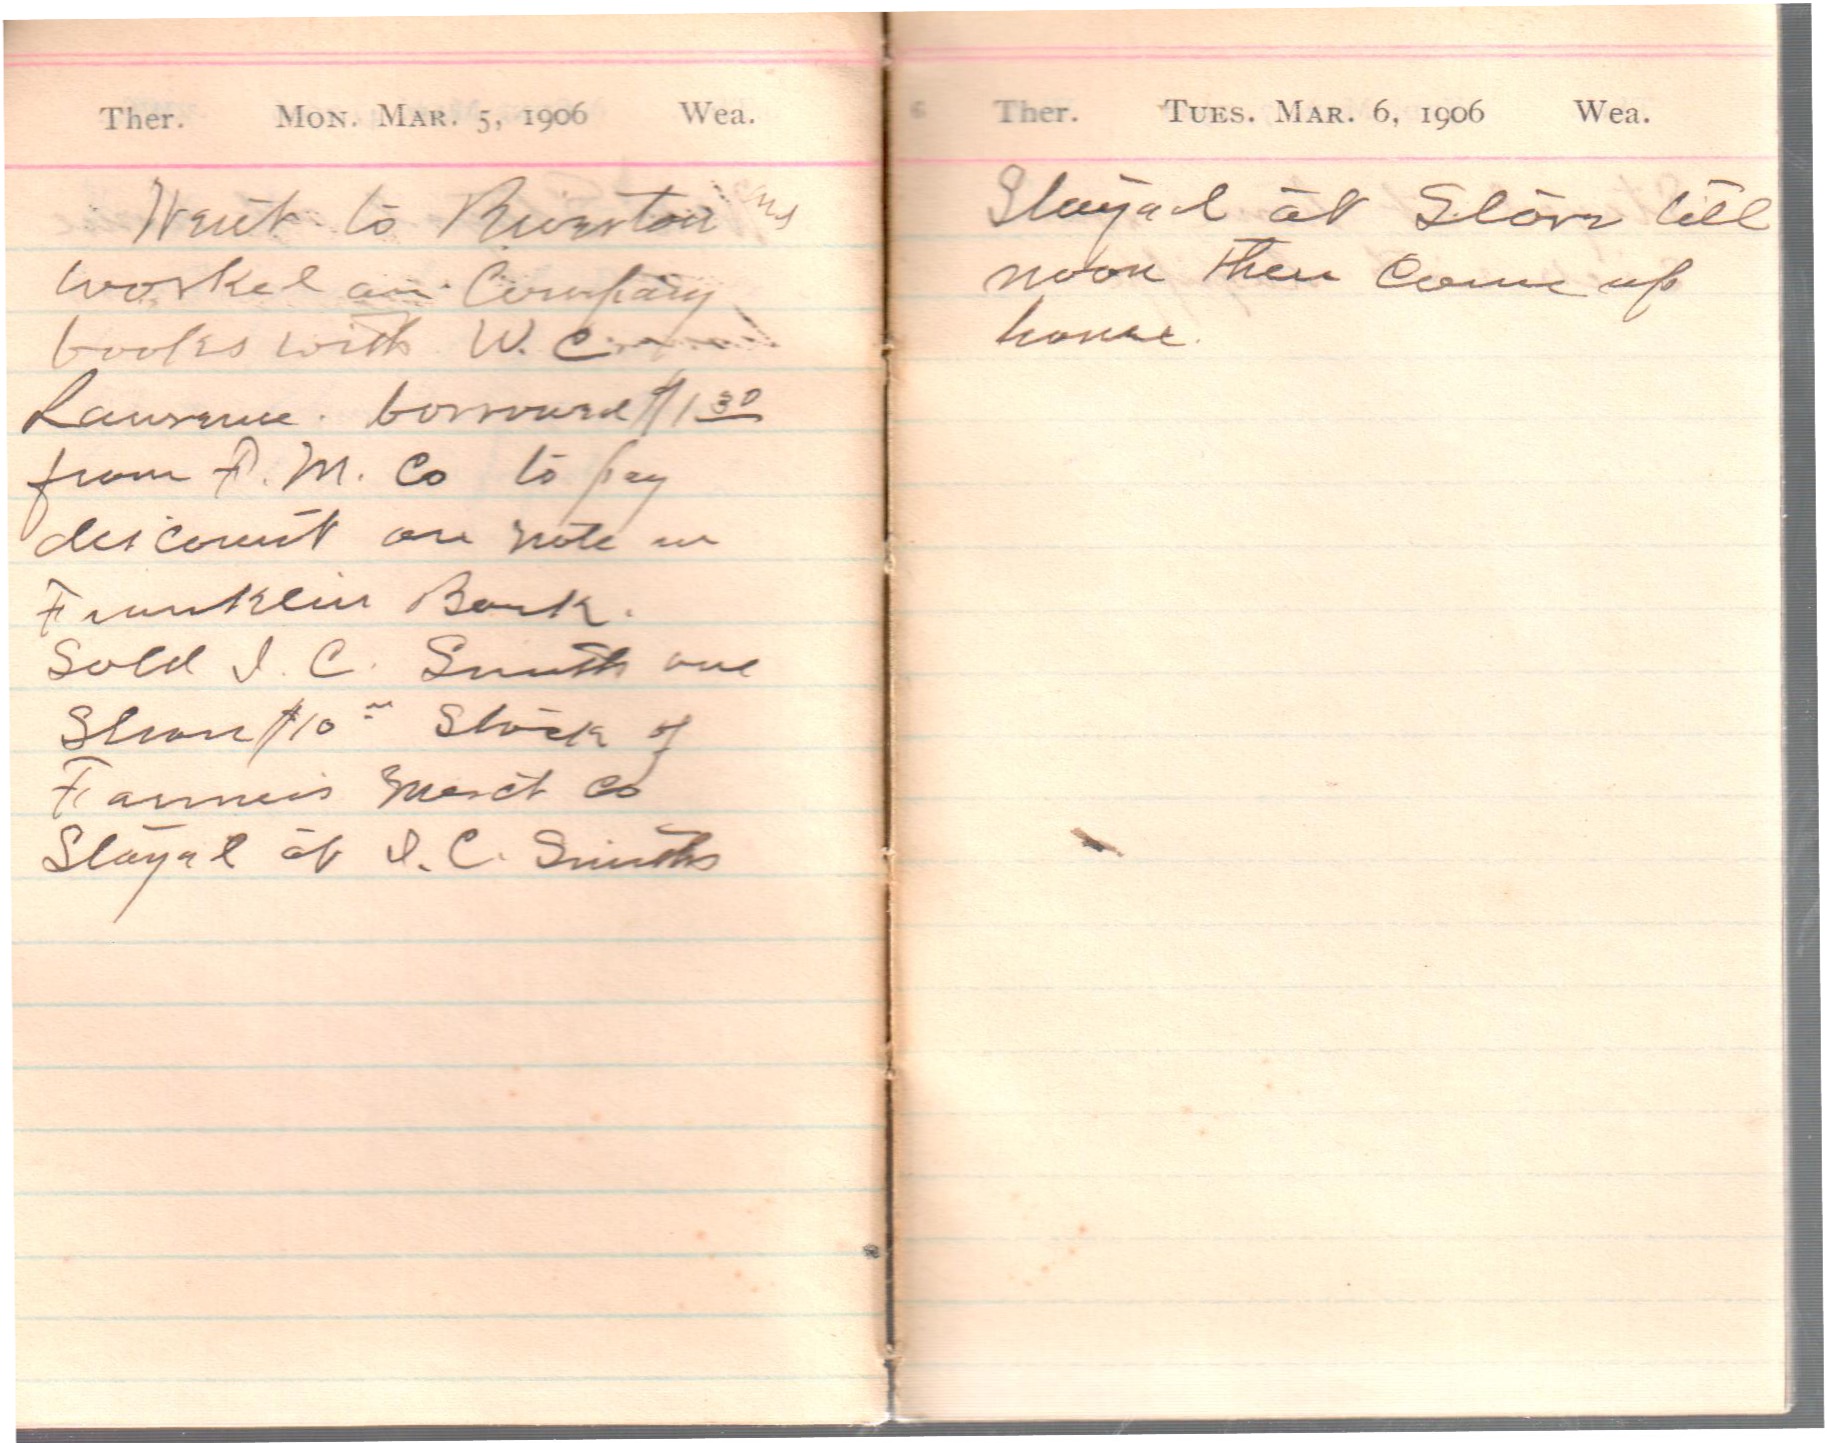 Ther. Mon. Mar. 5, 1906 Wea.
Went to Riverton and
worked on Company
books with W. C.
Lawrence. borrowed $1 30
from F. M. Co to pay
discount on note in
Franklin Bank.
Sold I. C. Smith one
Share $10 Stock of
Farmers Merct Co
Stayed at I. C. Smiths
Ther. Tues. Mar. 6, 1906 Wea.
Stayed at Store till
noon then Come up
home.